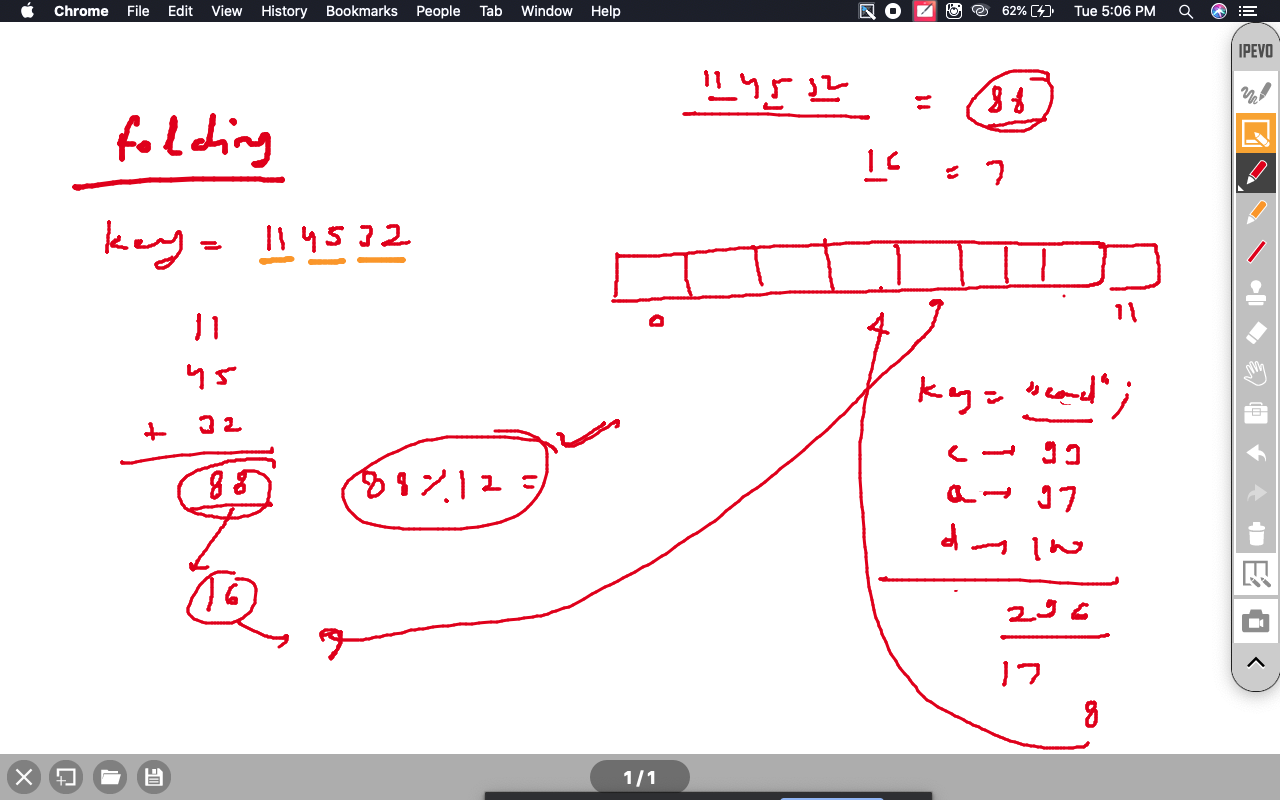 Chrome File Edit View History Bookmarks People Tab Window Help 62% Tue 5:06 PM
IPEVO
folding
key = 11 45 32
11
45
+ 32
88
16
7
88 % 12 =
11 45 32 = 88
16 = 7
0 4 7 11
key = "cad";
c → 99
a → 97
d → 100
296
17
8
1/1